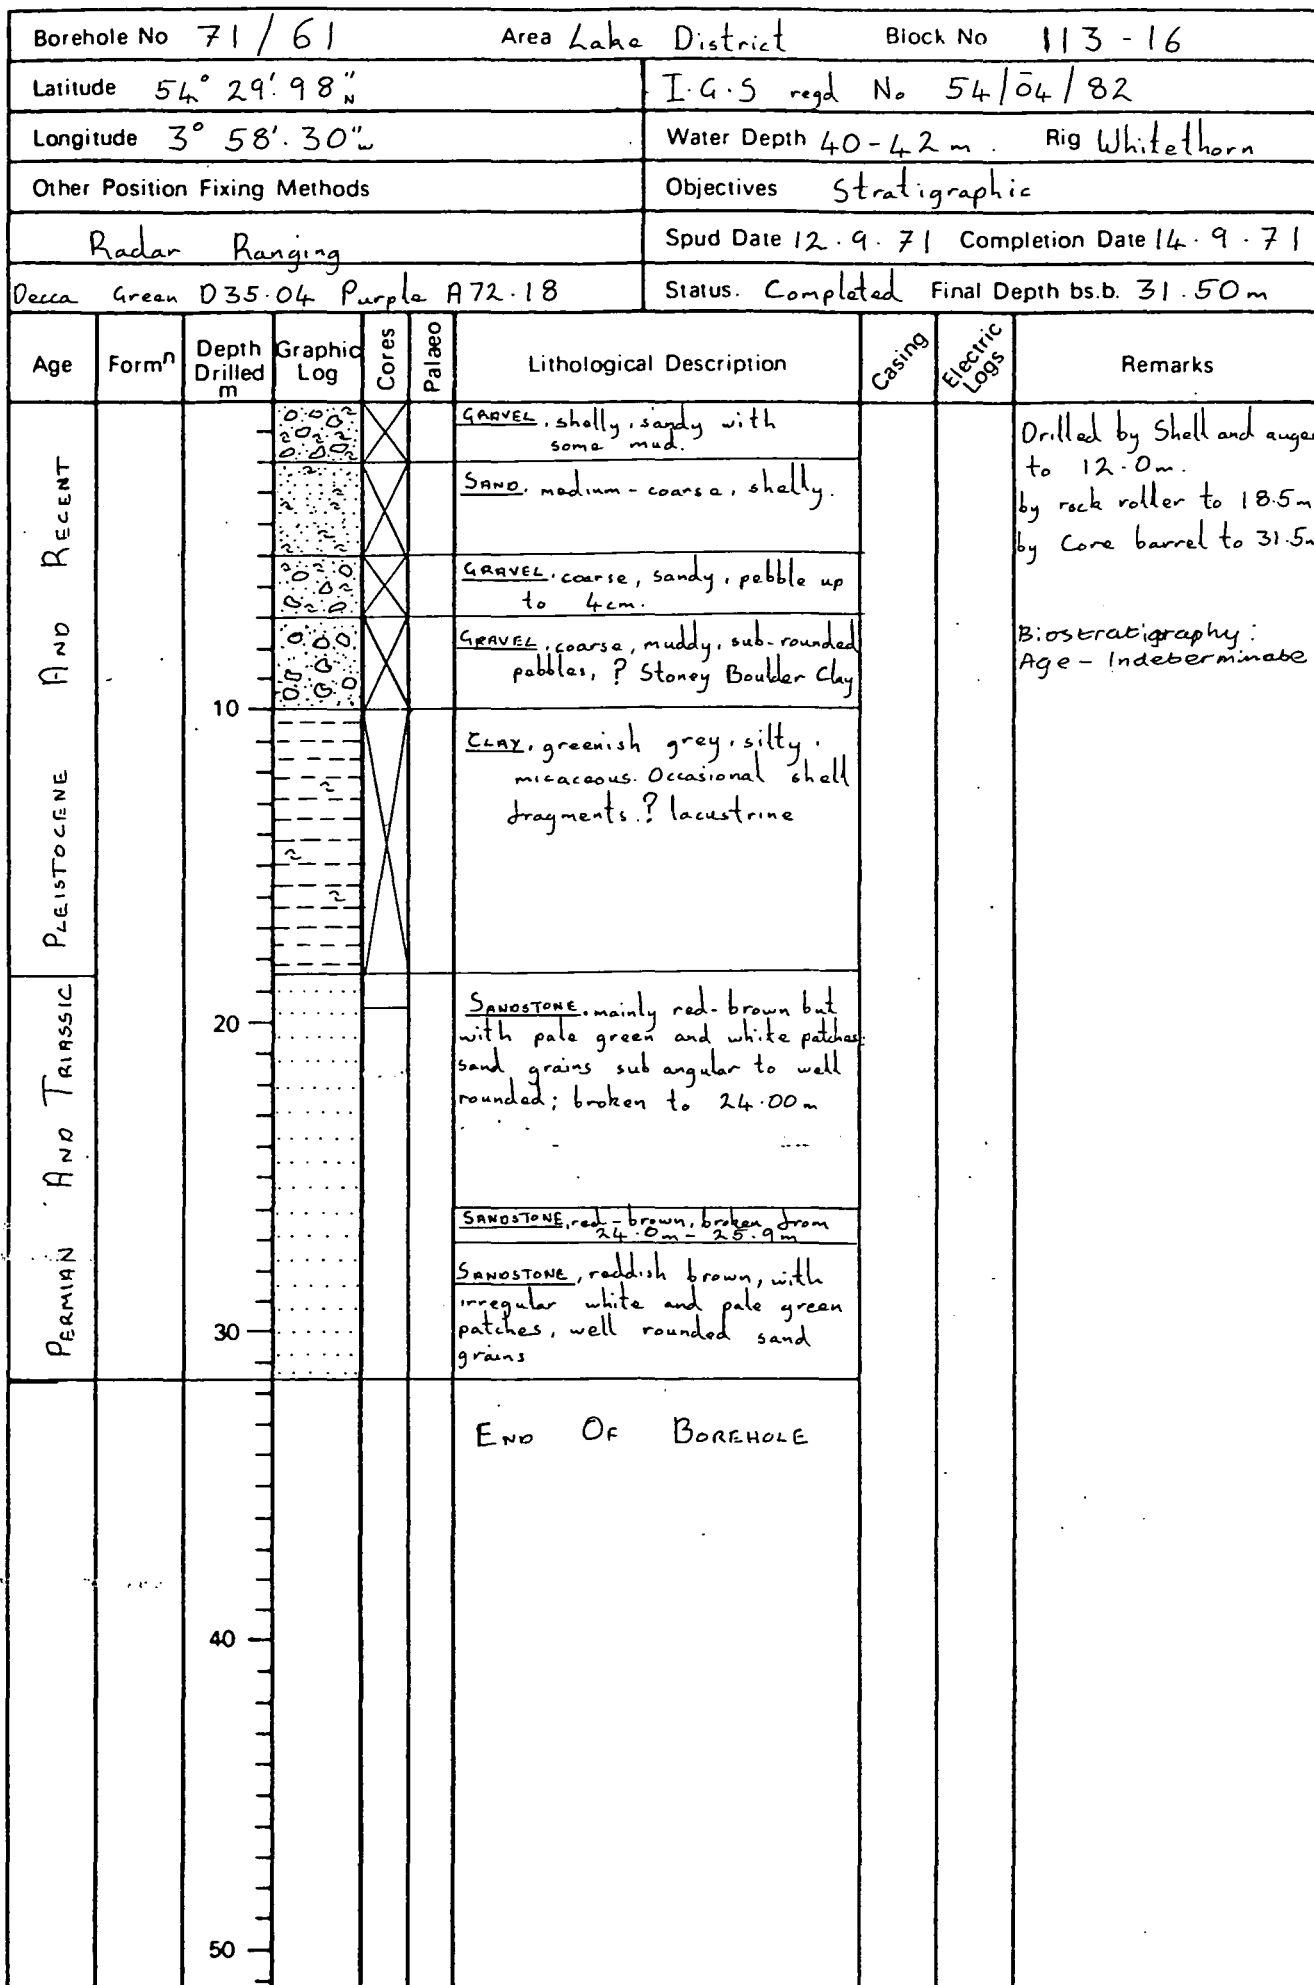 Borehole No 71/61 Area Lake District Block No 113-16
Latitude 54° 29'. 98" N I.G.S regd No 54/04/82
Longitude 3° 58'. 30" W Water Depth 40-42 m. Rig Whitethorn
Other Position Fixing Methods Objectives Stratigraphic
Radar Ranging Spud Date 12.9.71 Completion Date 14.9.71
Decca Green D35.04 Purple A72.18 Status. Completed Final Depth bs.b. 31.50m
Age Formⁿ Depth Drilled m Graphic Log Cores Palaeo Lithological Description Casing Electric Logs Remarks
PLEISTOCENE AND RECENT
PERMIAN AND TRIASSIC
10
20
30
40
50
GRAVEL, shelly, sandy with
some mud.
SAND, medium-coarse, shelly.
GRAVEL, coarse, sandy, pebble up
to 4cm.
GRAVEL, coarse, muddy, sub-rounded
pebbles, ? Stoney Boulder Clay
CLAY, greenish grey, silty,
micaceous. Occasional shell
fragments. ? lacustrine
SANDSTONE, mainly red-brown but
with pale green and white patches;
sand grains sub angular to well
rounded; broken to 24.00m
SANDSTONE, red-brown, broken from
24.0m - 25.9m
SANDSTONE, reddish brown, with
irregular white and pale green
patches, well rounded sand
grains
END OF BOREHOLE
Drilled by Shell and auger
to 12.0m.
by rock roller to 18.5m
by Core barrel to 31.5m
Biostratigraphy:
Age - Indeterminate